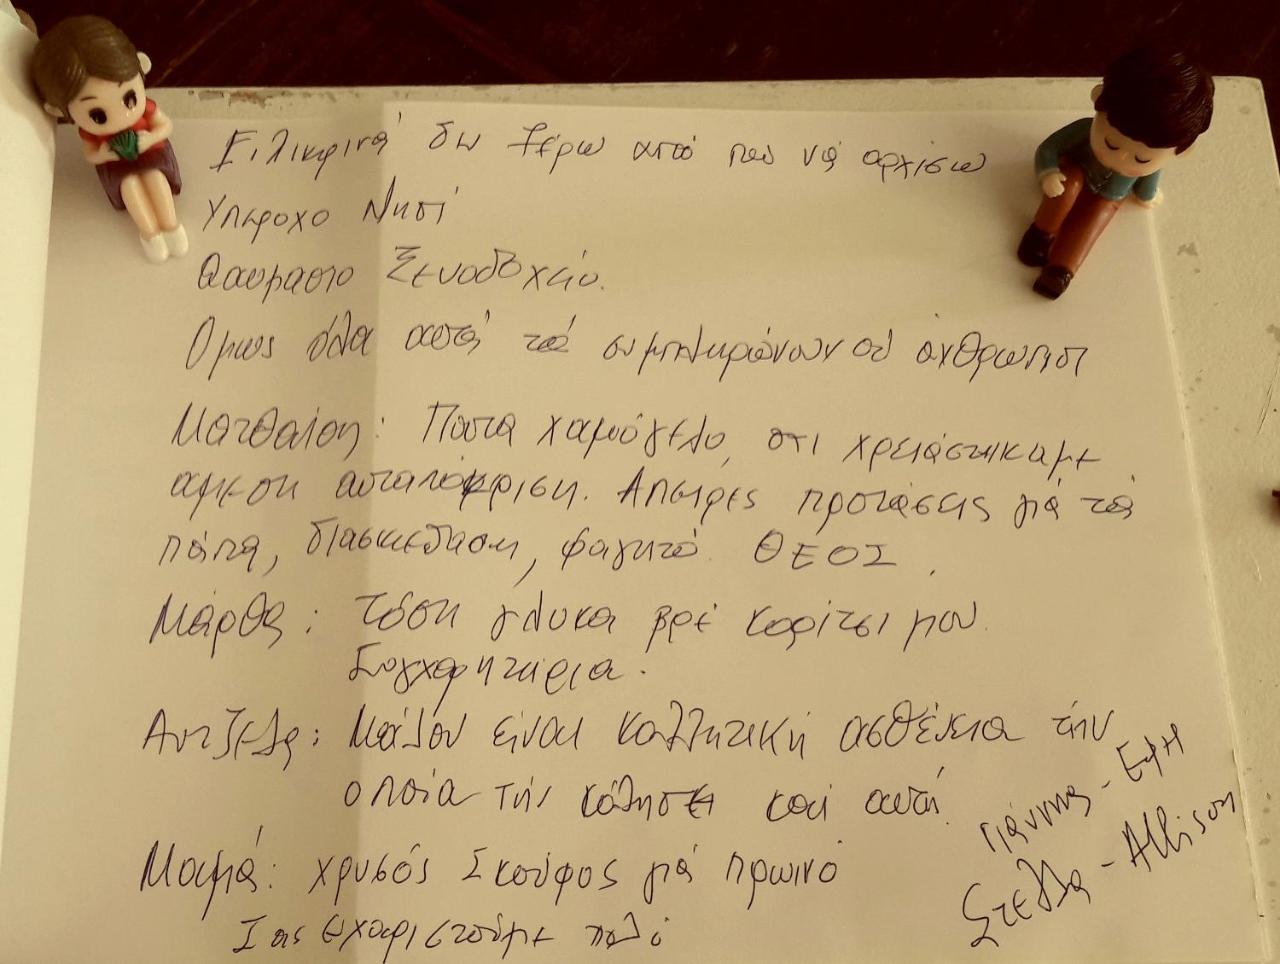 Ειλικρινά δεν ξέρω από που νά αρχίσω
Υπέροχο Νησί
Θαυμάσιο Ξενοδοχείο.
Ομως όλα αυτά τά συμπληρώνουν οι άνθρωποι
Ματθαίος: Πάντα χαμόγελο, οτι χρειάστηκαμε
αμεση ανταπόκριση. Απειρες προτάσεις γιά τά
πάντα, διασκεδαση, φαγητό. ΘΕΟΣ.
Μάρθα: Τόση γλυκα βρέ κορίτσι μου.
Συγχαρητηρια.
Αντζελα: Μάλον είναι κολλητική ασθένεια τήν
οποία τήν κόλησε καί αυτή.
Μαμά: χρυσός Σκούφος γιά πρωινό
Σας ευχαριστούμε πολύ
Γιάννης - Εφη
Στέλλα - Allison